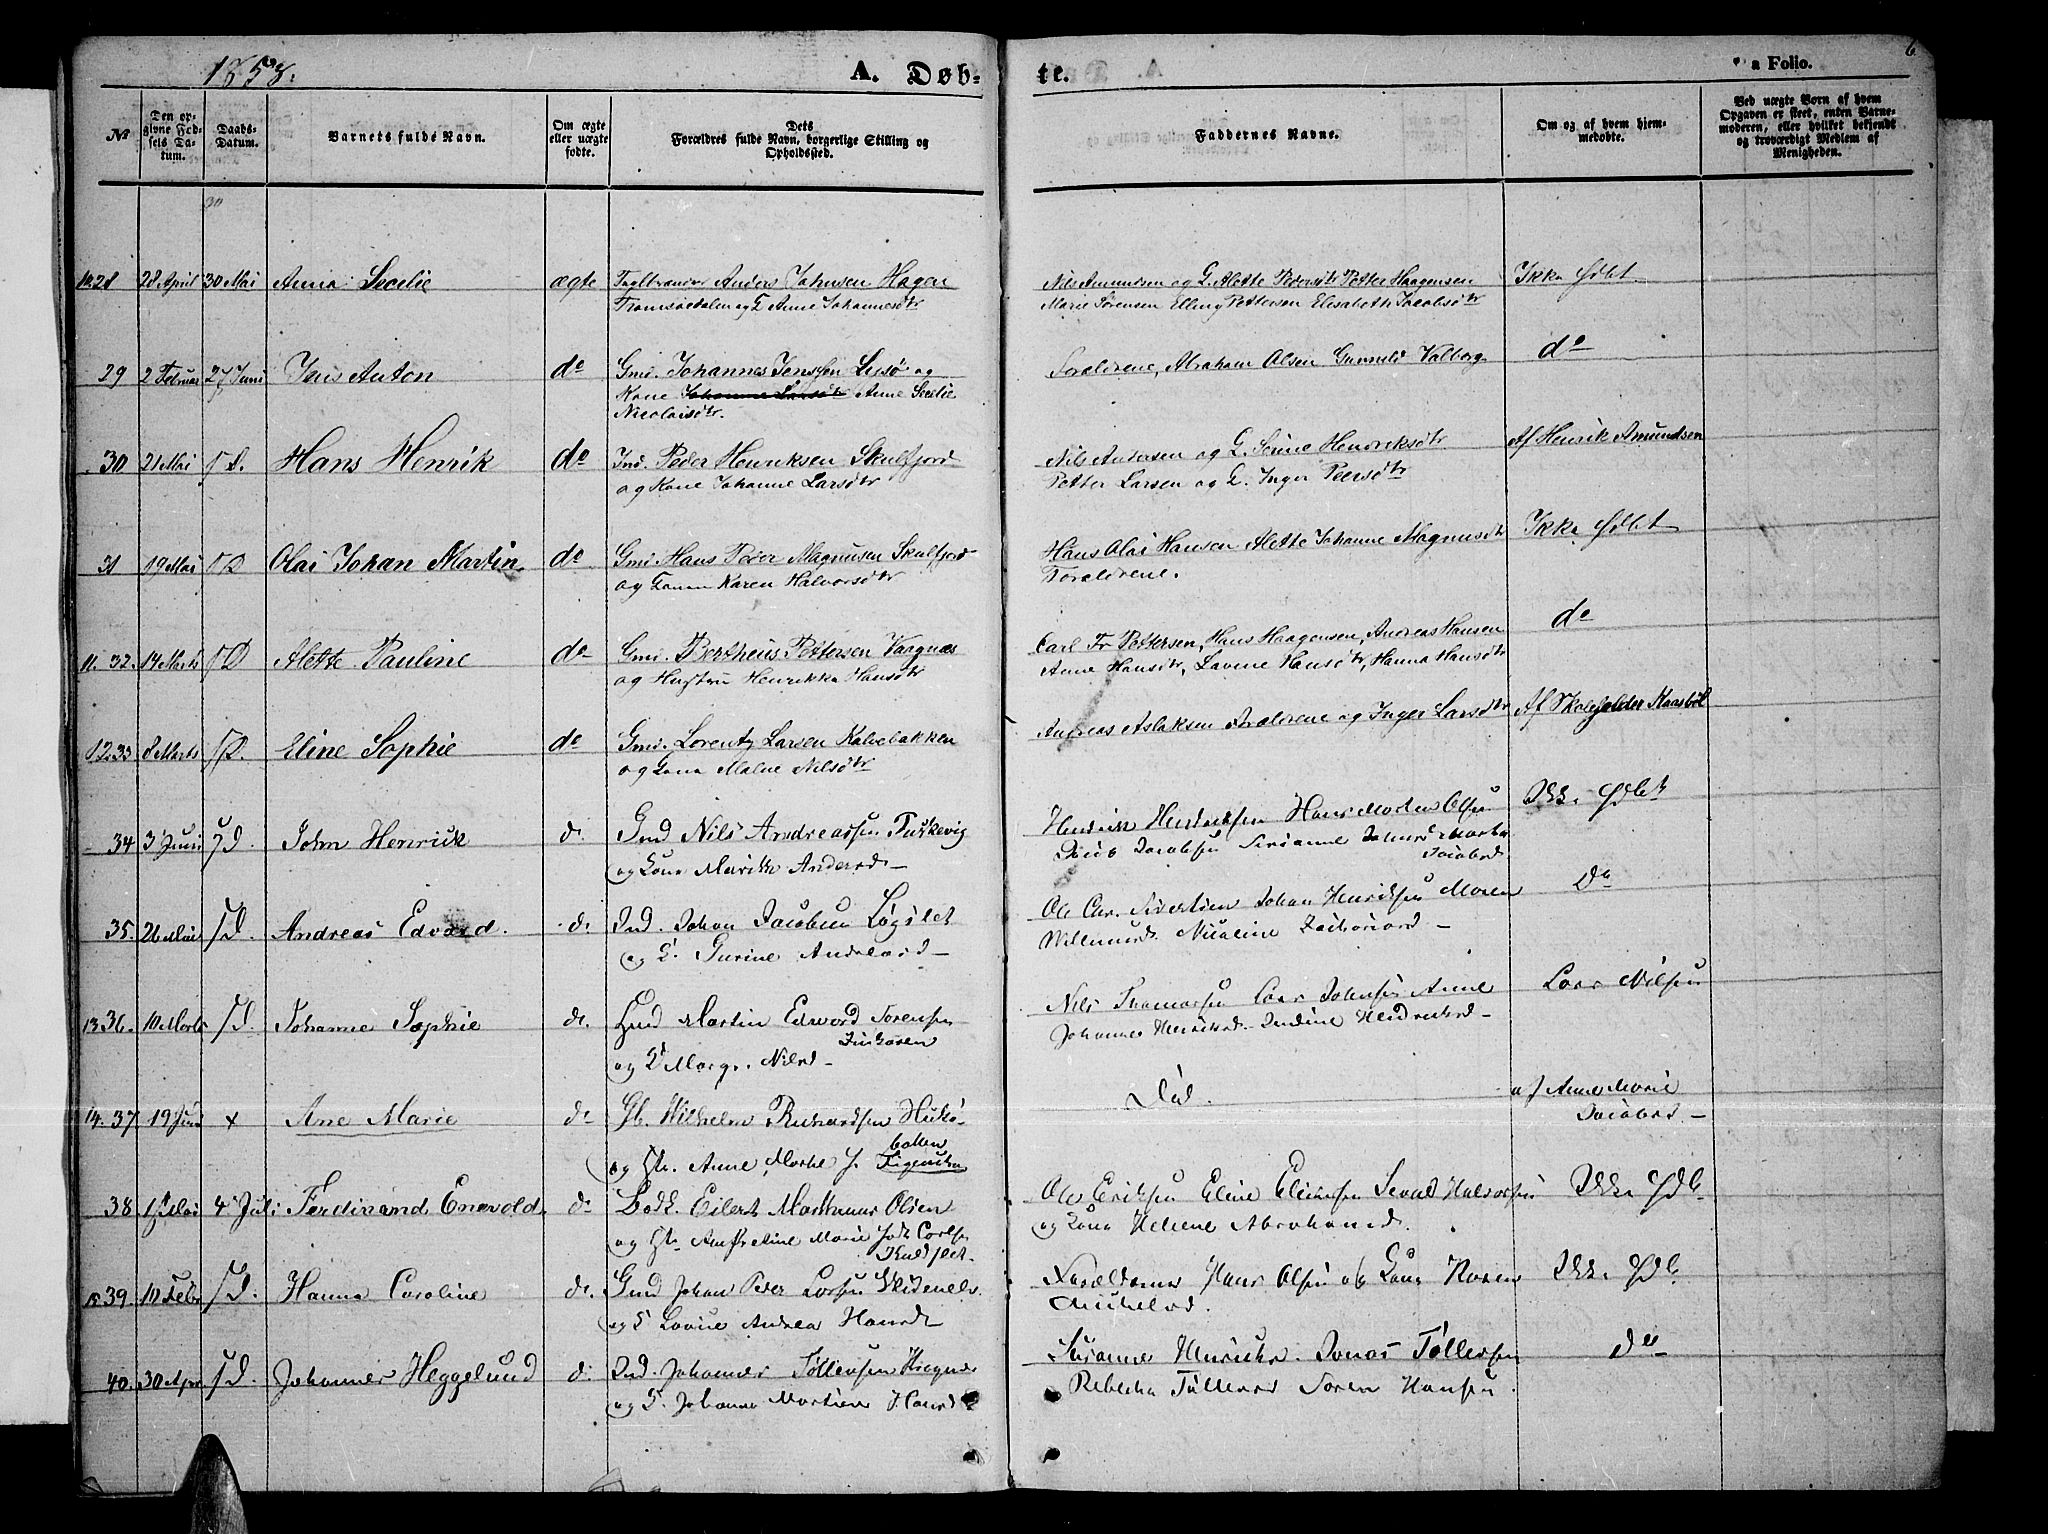 1858.
A. Døb-
te.
a Folio.
6
№
Den op-
givne Fød-
sels Da-
tum.
Daabs-
Datum.
Barnets fulde Navn.
Om ægte
eller uægte
fødte.
Dets
Forældres fulde Navn, borgerlige Stilling og
Opholdssted.
Faddernes Navne.
Om og af hvem hjem-
medøbte.
Ved uægte Børn af hvem
Opgaven er skeet, enten Barne-
moderen, eller hvilket bekjendt
og troværdigt Medlem af
Menigheden.
30
28 28 April 30 Mai Anna Secelie ægte Anders Johnsen Hagen
Tromsøedalen og Anne Johannesdtr
Nils Amundsen og G. Alette Pedersdtr Petter Haagensen
Marie Sørensen Elling Pettersen Elisabeth Jacobsdtr
Ikke Hdbt
29 2 Februar 27 Juni Jens Anton do Gmd. Johannes Jenssen og
Kone Johanne Larsdtr Anne Secelie
Nicolaisdtr.
Forældrene, Abraham Olsen Valborg
do
30 21 Mai S.D. Hans Henrik do Ind. Peder Henriksen Skulfjord
og Kone Johanne Larsdtr
Nils Andersen og G. Henriksdtr
Petter Larsen og G. Inger Peersdtr
Af Henrik Amundsen
31 19 Mai S.D. Olai Johan Martin do Gmd Hans Peder Magnusen Skulfjord
og Karen Halvorsdtr
Hans Olai Hansen Alette Johanne Magnusdtr
Forældrene.
Ikke Hdbt
11. 32. 14 Marts S.D. Alette Pauline do Gmd. Bertheus Pettersen Vaagnæs
og Hustru Henrikka Hansdtr
Carl Fr Pettersen, Hans Haagensen, Andreas Hansen
Anne Hansdtr, Lavine Hansdtr, Hanna Hansdtr
do
12 33 8 Marts S.D. Eline Sophie do Gmd. Lorentz Larsen Kalvebakken
og Kona Malne Nilsdtr
Andreas Aslaksen Forældrene og Inger Larsdtr
Af Skoleholder Kaasbøl
34 3 Juni S.D. John Henrick do Gmd Nils Andreassen Fiskevig
og Kona Marith Andersd
Hendrik Hendriksen Hans Morten Olsen
Jacobsen Johnsd Martha
Jacobsd.
Ikke Hdbt
35. 26 Mai S.D. Andreas Edvard. do Ind. Johan Jacobsen Løgslet
og K. Gurine Andreasd
Ole Chr. Sivertsen Johan Henriksen Maren
Nicoline Zachariasd
Do
13 36. 10 Marts S.D. Johanne Sophie do. Gmd Martin Edvard Sørensen
og K Marg. Nilsd
Nils Thomassen Lars Johnsen Anne
Johanne Henriksd. Hendriksd
Lars Nilsen
14. 37 19 Juni + Ane Marie do Gb. Wilhelm Richardsen
og Hu. Anne Marthe J.
Død.
af Anne Marie
Jacobsd
38. Mai 4 Juli Ferdinand Enevold. do Eilert Matthæus Olsen
og Hu Marie Carlsen
Ole Eriksen Eline Sevald Halvorsen
og Kona Helene Abrahamsd.
Ikke Hdb
15 39. 10 Febr S.D. Hanna Caroline do. Gmd Johan Peder Larsen
og K Lovise Andrea Hansd
Forældrene Hans Olsen og Kona Karen
Michelsd.
Ikke Hdb
40. 30 Apr S.D. Johannes Heggelund do Ind. Johannes Tøllevsen
og K. Johanna Hansd
Susanne Henriks. Jonas Tøllefsen
Rebecka Tøllevsd Søren Hansen.
Do